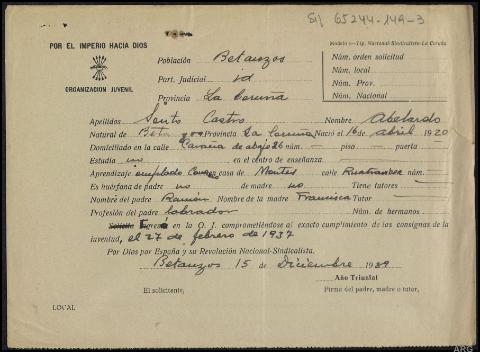 SI 65244-149-3
POR EL IMPERIO HACIA DIOS
ORGANIZACION JUVENIL
Modelo Tip. Nacional-Sindicalista-La Coruña
Población Betanzos
Part. Judicial id
Provincia La Coruña
Núm. orden solicitud
Núm. local
Núm. Prov.
Núm. Nacional
Apellidos Castro Nombre Abelardo
Natural de Provincia La Coruña Nació el 16 de abril 1920
Domiciliado en la calle de abajo 26 núm. piso puerta
Estudia no en el centro de enseñanza
Aprendizaje empleado en casa de Montes calle
Es huérfano de padre no de madre no Tiene tutores
Nombre del padre Ramón Nombre de la madre Francisca Tutor
Profesión del padre labrador Núm. de hermanos
en la O. J. comprometiéndose al exacto cumplimiento de las consignas de la
juventud, el 27 de febrero de 1937
Por Dios por España y su Revolución Nacional-Sindicalista.
Betanzos 15 de Diciembre 1939
Año Triunfal
El solicitante, Firma del padre, madre o tutor,
LOCAL
ARG